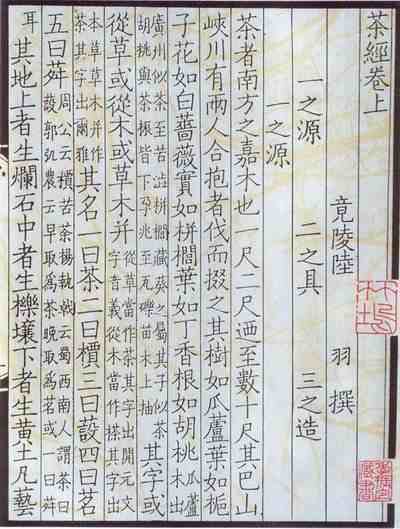 茶經卷上
竟陵陸 羽 撰
一之源 二之具 三之造
一之源
茶者南方之嘉木也一尺二尺迺至數十尺其巴山
峽川有兩人合抱者伐而掇之其樹如瓜蘆葉如梔
子花如白薔薇實如栟櫚葉如丁香根如胡桃 瓜蘆木出
廣州似茶至苦澁栟櫚蒲葵之屬其子似茶胡桃與茶根皆下孕兆至瓦礫苗木上抽 其字或
從草或從木或草木并 從草當作茶其字出開元文字音義從木當作搽其字出
本草草木并作荼其字出爾雅 其名一曰茶二曰檟三曰蔎四曰茗
五曰荈 周公云檟苦荼揚執戟云蜀西南人謂茶曰蔎郭弘農云早取爲茶晚取爲茗或一曰荈
耳 其地上者生爛石中者生櫟壤下者生黃土凡藝